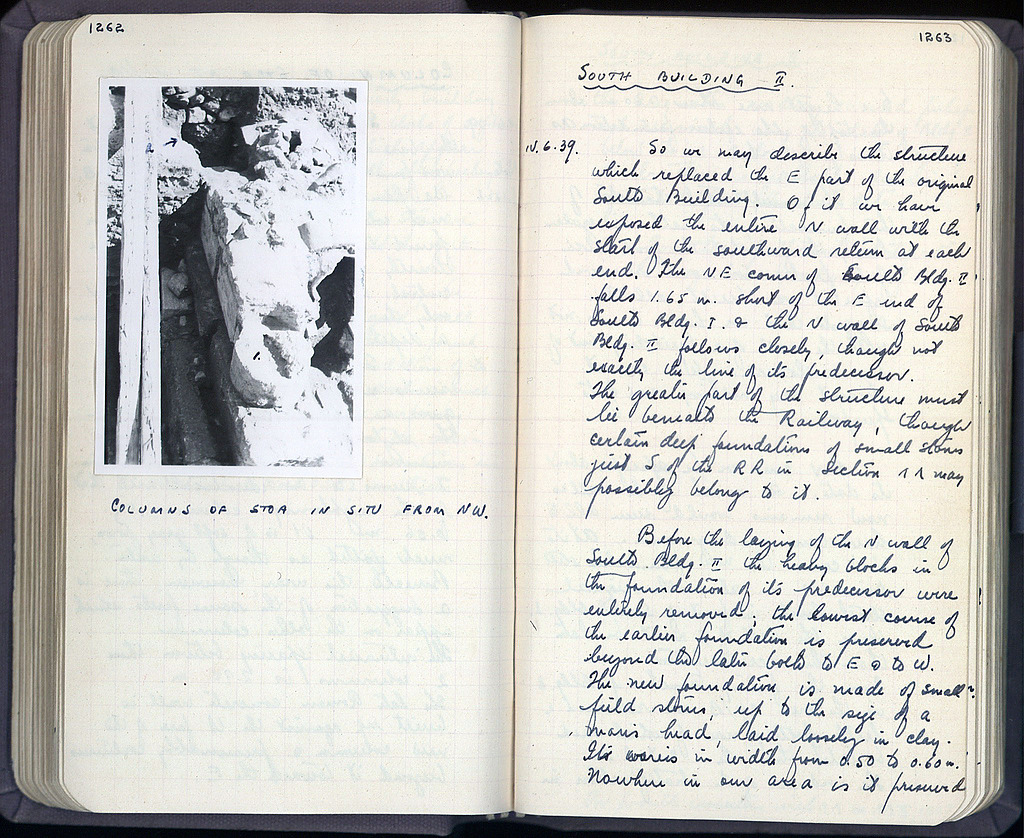 1262
COLUMNS OF STOA IN SITU FROM NW.
1263
SOUTH BUILDING II.
IV. 6. 39. So we may describe the structure
which replaced the E part of the original
South Building. Of it we have
exposed the entire N wall with the
start of the southward return at each
end. The NE corner of South Bldg. II
falls 1.65 m. short of the E end of
South Bldg. I. & the N wall of South
Bldg. II follows closely, though not
exactly the line of its predecessor.
The greater part of the structure must
lie beneath the Railway, though
certain deep foundations of small stones
just S of the RR in Section ΛΛ may
possibly belong to it.
Before the laying of the N wall of
South Bldg. II the heavy blocks in
the foundation of its predecessor were
entirely removed; the lowest course of
the earlier foundation is preserved
beyond the later both to E & to W.
The new foundation is made of small
field stones, up to the size of a
mans head, laid loosely in clay.
It varies in width from 0.50 to 0.60 m.
Nowhere in our area is it preserved